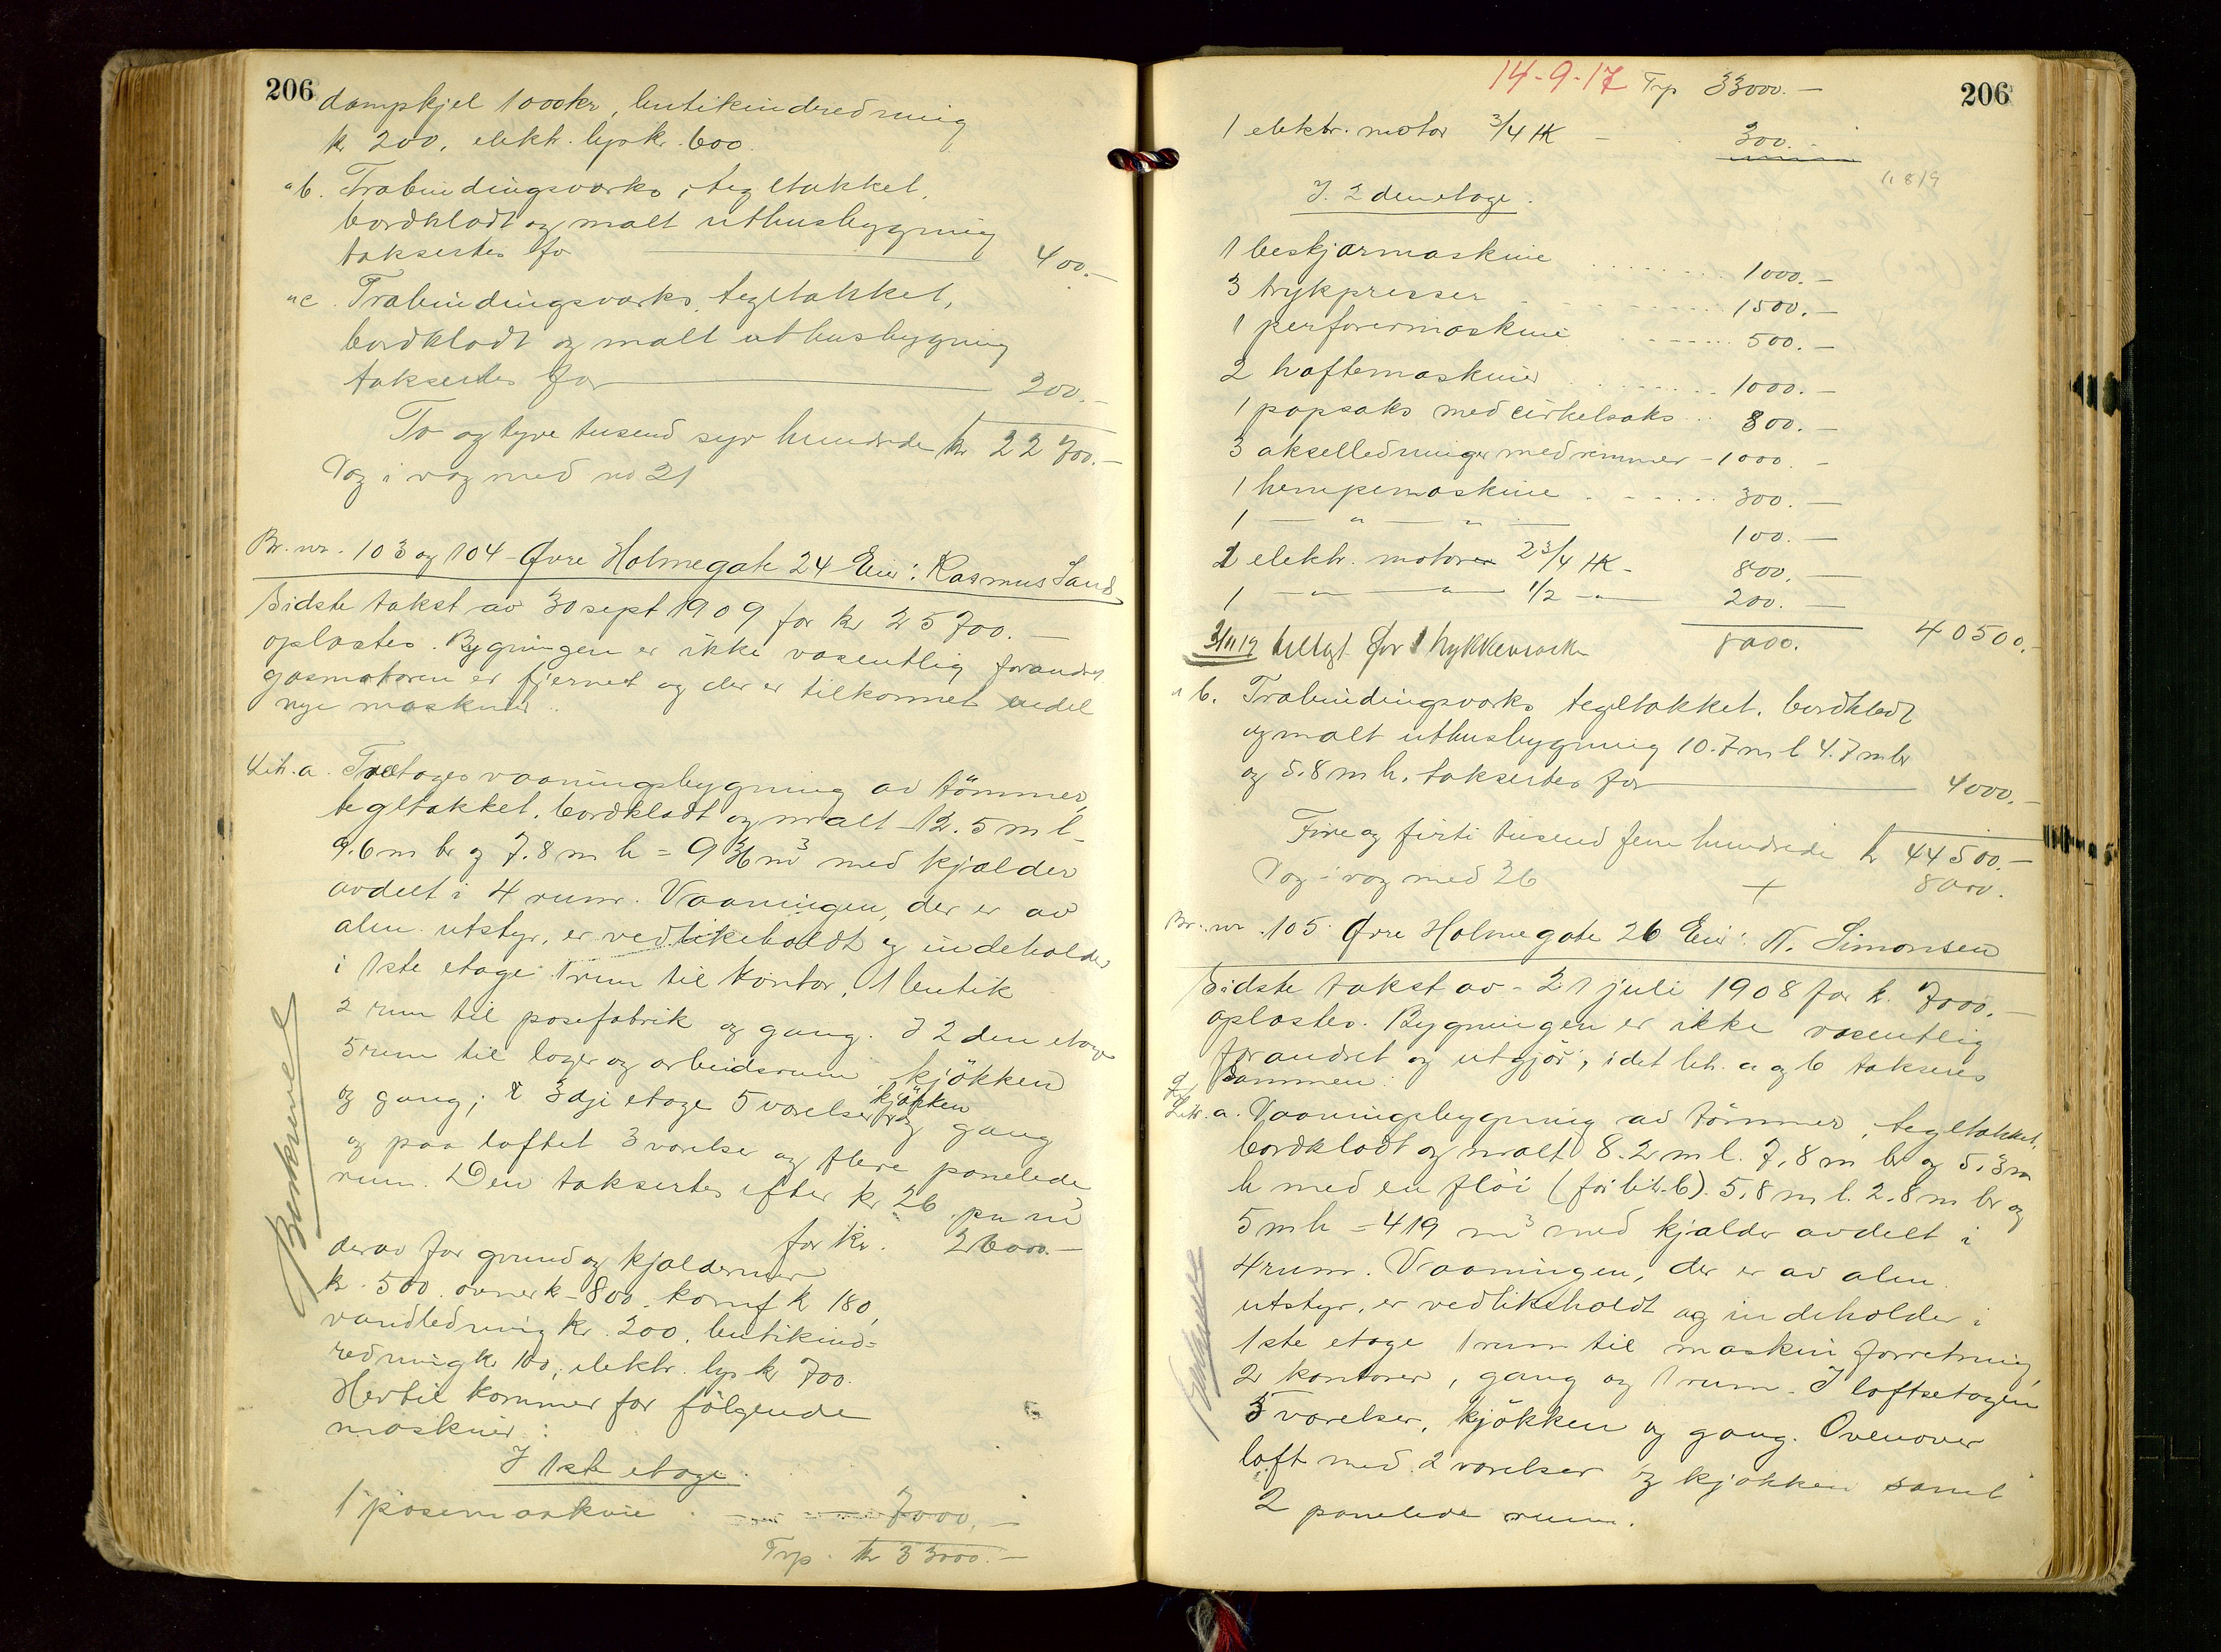 206
dampkjel 1000 kr, butikindredning
kr 200, elektr. lys kr. 600.
"b. Træbindingsværks, tegltakket,
bordklædt og malt uthusbygning
taksertes for 400.-
"c. Træbindingsværks, tegltakket,
bordklædt og malt uthusbygning
taksertes for 200.-
To og tyve tusend syv hundrede kr 22700.-
Væg i væg med no 21
Br. nr. 103 og 104 - Øvre Holmegate 24 Eier: Rasmus Sand
Sidste takst av 30 sept 1909 for kr 25700.-
oplæstes. Bygningen er ikke væsentlig forandret
gasmotoren er fjernet og der er tilkommet endel
nye maskiner.
Lit. a. Toetages vaaningsbygning av tömmer,
tegltakket, bordklædt og malt - 12.5 m l -
9.6 m br og 7.8 m h = 936 m³ med kjælder
avdelt i 4 rum. Vaaningen, der er av
alm. utstyr, er vedlikeholdt og indeholder
i 1ste etage: 1 rum til kontor, 1 butik
2 rum til posefabrik og gang. I 2den etage
5 rum til lager og arbeidsrum, kjökken
og gang; i 3dje etage 5 værelser, kjökken og gang
og paa loftet 3 værelser og flere panelede
rum. Den taksertes efter kr 26 pr m³
for kr. 26000.-
derav for grund og kjældermur
kr. 500. ovner kr - 800. komf kr 180,
vandledning kr. 200, butikind=
redning kr 100, elektr. lys kr 700.
Hertil kommer for fölgende
maskiner:
I 1ste etage.
1 posemaskine 7000.-
Trp. kr 33000.-
Beskrevet
14-9-17 Trp 33000.-
206
1 elektr. motor 3/4 HK - 300.-
I. 2den etage.
1 beskjærmaskine 1000.-
3 trykpresser 1500.-
1 perforermaskine 500.-
2 hæftemaskiner 1000.-
1 papsaks med cirkelsaks 800.-
3 akselledninger med remmer - 1000.-
1 hempemaskine 300.-
1 - " - " - 100.-
1 elektr. motorer 2 3/4 HK - 800.-
1 - " - " 1/2 - " - 200.- 40500.-
tillægt for 1 trykkemask 8000.
" b. Træbindingsværks tegltakket, bordklædt
og malt uthusbygning 10.7 m l 4.7 m br
og 5.8 m h. taksertes for 4000.-
Fire og firti tusend fem hundrede kr 44500.-
Væg i væg med 26 + 8000.
Br. nr. 105. Øvre Holmegate 26 Eier: N. Simonsen
Sidste takst av - 21 juli 1908 for kr. 7000.-
oplæstes. Bygningen er ikke væsentlig
forandret og utgjör, idet lit. a og b takseres
sammen:
Lit. a. Vaaningsbygning av tömmer, tegltakket,
bordklædt og malt 8.2 m l. 7,8 m br og 5.3 m
h med en flöi (för lit. b). 5,8 m l. 2.8 m br og
5 m h = 419 m³ med kjælder avdelt i
4 rum. Vaaningen, der er av alm.
utstyr, er vedlikeholdt og indeholder i
1ste etage 1 rum til maskin forretning,
2 kontorer, gang og 1 rum. I loftsetagen
3 værelser, kjökken og gang. Ovenover
loft med 2 værelser og kjøkken samt
2 panelede rum.
Beskrevet